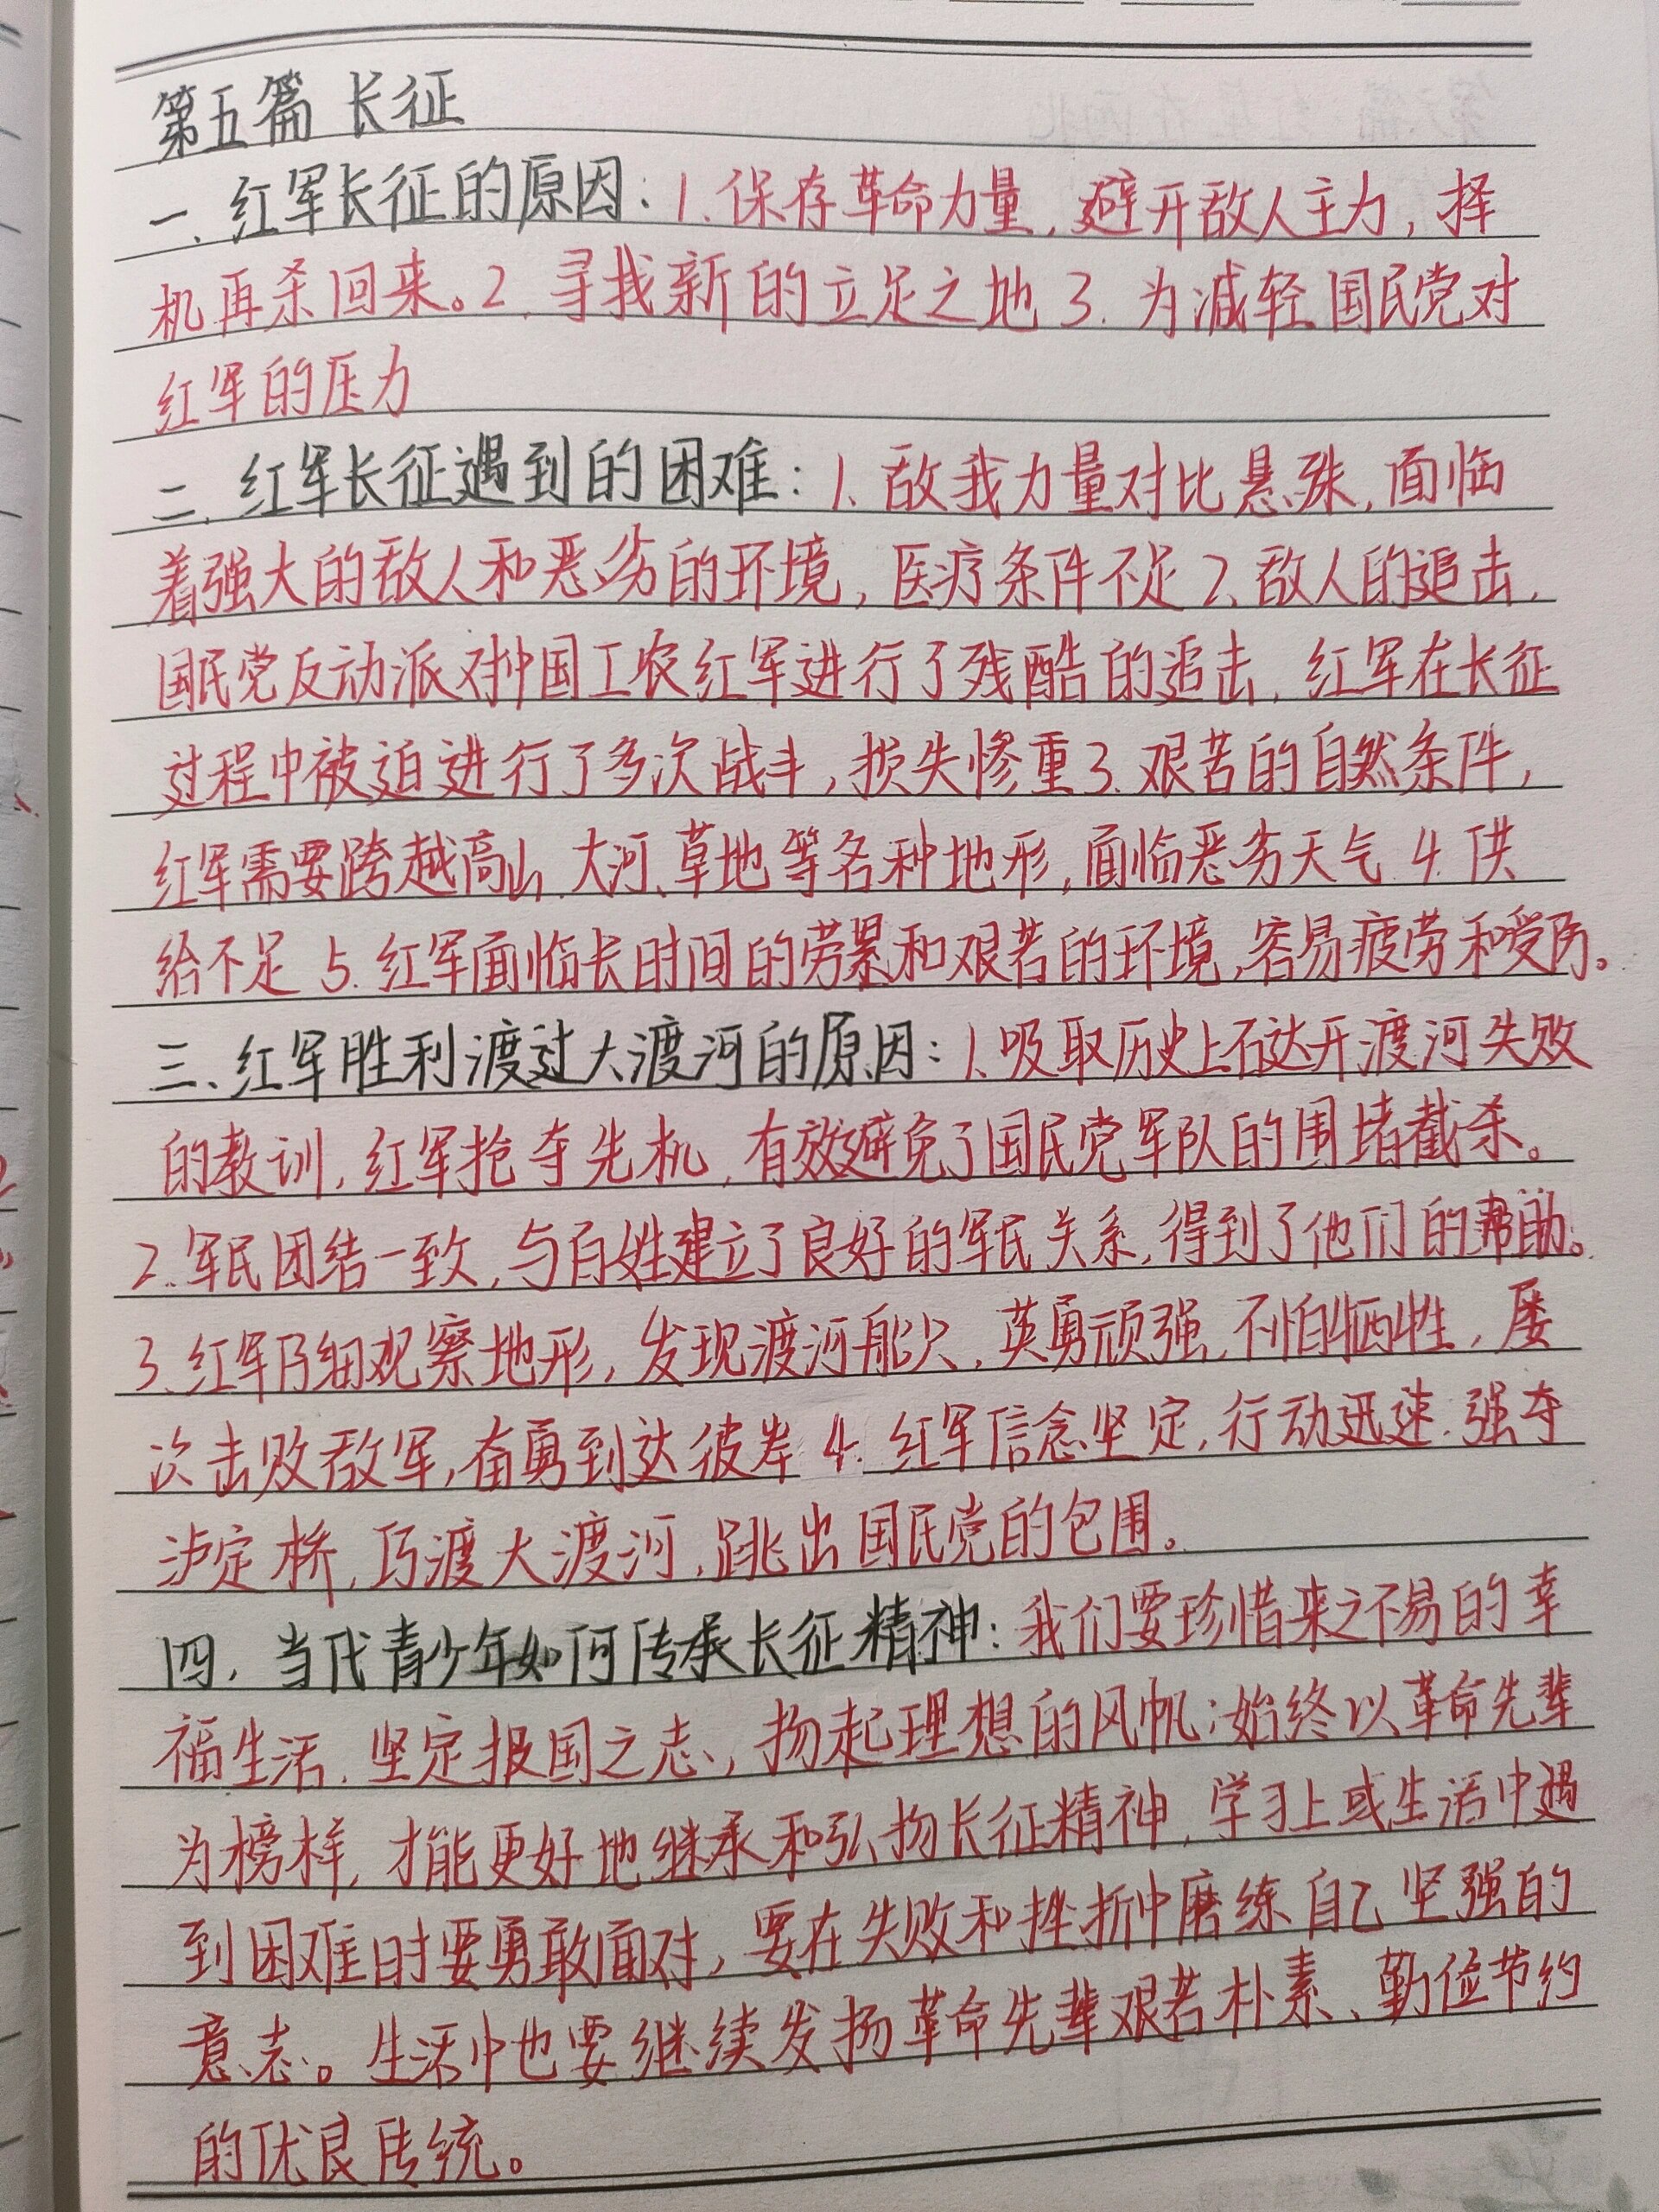 第五篇 长征
一、红军长征的原因：1.保存革命力量，避开敌人主力，择
机再杀回来。2.寻找新的立足之地 3.为减轻国民党对
红军的压力
二、红军长征遇到的困难：1、敌我力量对比悬殊，面临
着强大的敌人和恶劣的环境，医疗条件不足 2、敌人的追击，
国民党反动派对中国工农红军进行了残酷的追击，红军在长征
过程中被迫进行了多次战斗，损失惨重 3.艰苦的自然条件，
红军需要跨越高山、大河、草地等各种地形，面临恶劣天气 4.供
给不足 5.红军面临长时间的劳累和艰苦的环境，容易疲劳和受伤。
三、红军胜利渡过大渡河的原因：1、吸取历史上石达开渡河失败
的教训，红军抢夺先机，有效避免了国民党军队的围堵截杀。
2.军民团结一致，与百姓建立了良好的军民关系，得到了他们的帮助。
3.红军仔细观察地形，发现渡河船只，英勇顽强，不怕牺牲，屡
次击败敌军，奋勇到达彼岸 4.红军信念坚定，行动迅速，强夺
泸定桥，巧渡大渡河，跳出国民党的包围。
四、当代青少年如何传承长征精神：我们要珍惜来之不易的幸
福生活，坚定报国之志，扬起理想的风帆；始终以革命先辈
为榜样，才能更好地继承和弘扬长征精神，学习上或生活中遇
到困难时要勇敢面对，要在失败和挫折中磨练自己坚强的
意志。生活中也要继续发扬革命先辈艰苦朴素、勤俭节约
的优良传统。